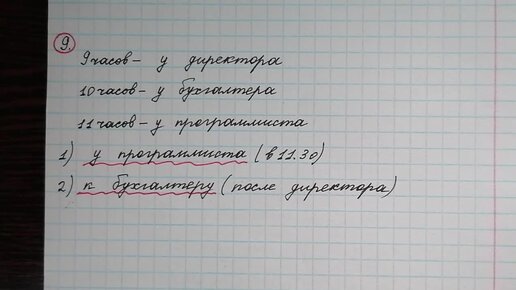 9.
9 часов - у директора
10 часов - у бухгалтера
11 часов - у программиста
1) у программиста (в 11.30)
2) к бухгалтеру (после директора)